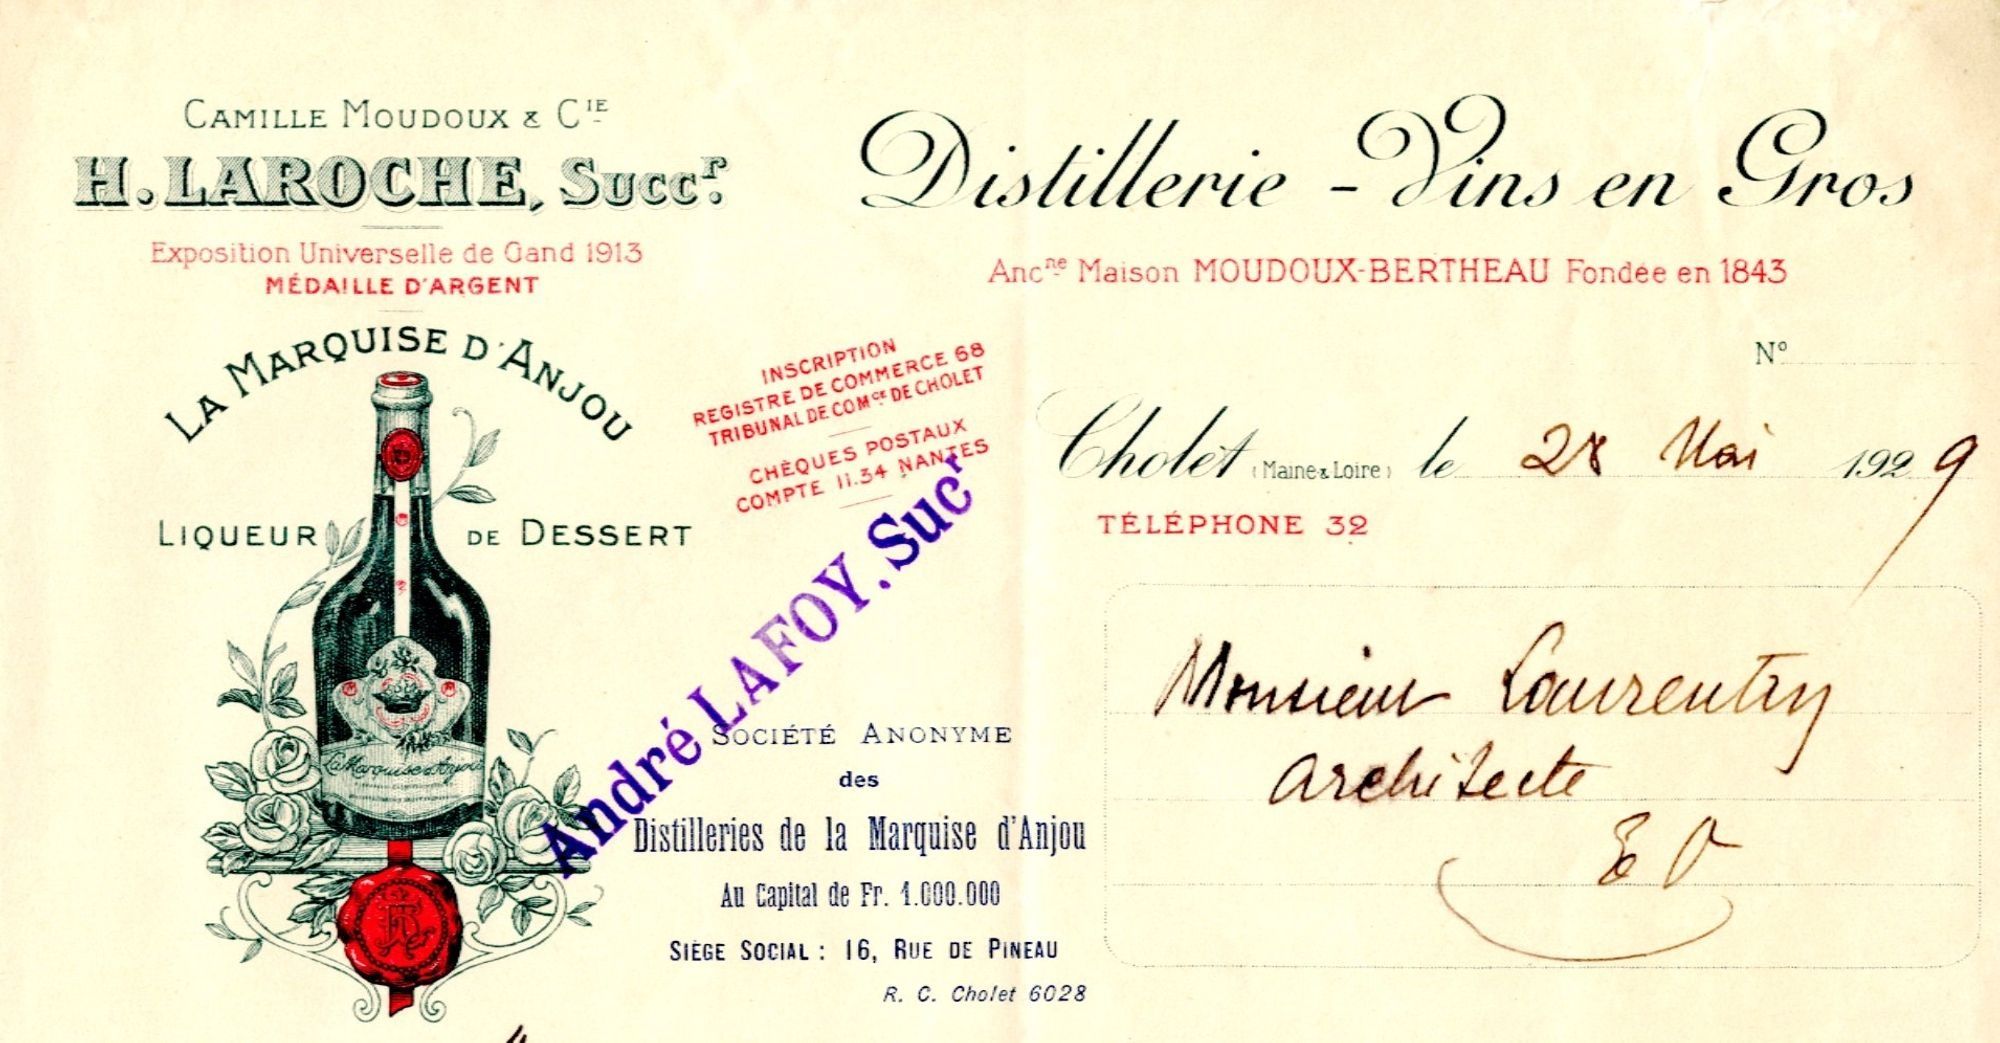 CAMILLE MOUDOUX & CIE
H. LAROCHE, Succr.
Exposition Universelle de Gand 1913
MÉDAILLE D'ARGENT
LA MARQUISE D'ANJOU
LIQUEUR DE DESSERT
La Marquise d'Anjou
INSCRIPTION
REGISTRE DE COMMERCE 68
TRIBUNAL DE COMce DE CHOLET
CHÈQUES POSTAUX
COMPTE 11.34 NANTES
André LAFOY. Sucr
SOCIÉTÉ ANONYME
des
Distilleries de la Marquise d'Anjou
Au Capital de Fr. 1.000.000
SIÈGE SOCIAL : 16, RUE DE PINEAU
R. C. Cholet 6028
Distillerie - Vins en Gros
Ancne Maison MOUDOUX-BERTHEAU Fondée en 1843
No
Cholet (Maine & Loire) le 28 Mai 1929
TÉLÉPHONE 32
Monsieur Laurentry
architecte
E V